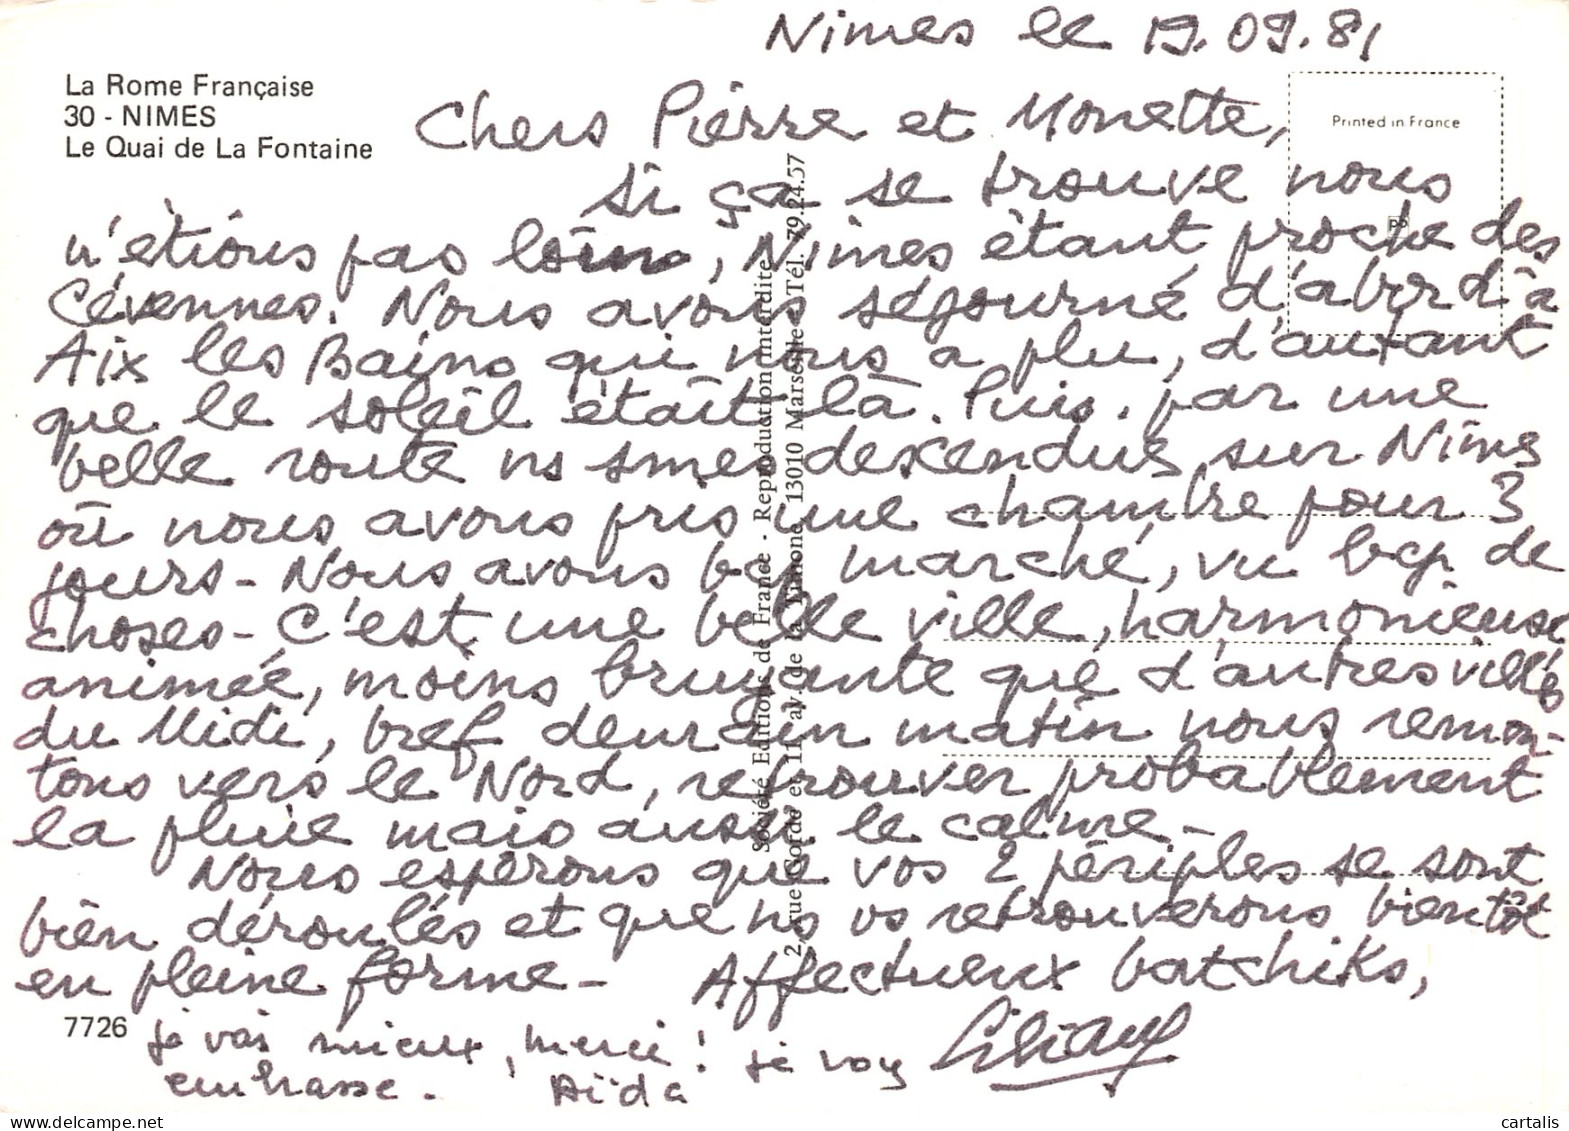 Nimes le 19.09.81
La Rome Française
30 - NIMES
Le Quai de La Fontaine
Printed in France
Chers Pierre et Monette,
si ça se trouve nous
n'étions pas loin, Nimes étant proche des
Cévennes. Nous avons séjourné d'abord à
Aix les Bains qui nous a plu, d'autant
que le soleil était là. Puis, par une
belle route ns smes descendus sur Nîmes
où nous avons pris une chambre pour 3
jours - Nous avons bcp marché, vu bcp de
choses - C'est une belle ville, harmonieuse
animée, moins bruyante que d'autres villes
du Midi, bref demain matin nous remon-
tons vers le Nord, retrouver probablement
la pluie mais aussi le calme -
Nous espérons que vos 2 périples se sont
bien déroulés et que ns vs retrouverons bientôt
en pleine forme - Affectueux batchiks,
Liliane
7726
je vais mieux, merci ! je vous
embrasse. Aïda
Société Editions de France - Reproduction interdite
2, rue Gorde et 11, av. de la Timone 13010 Marseille Tél. 79.24.57
cartalis